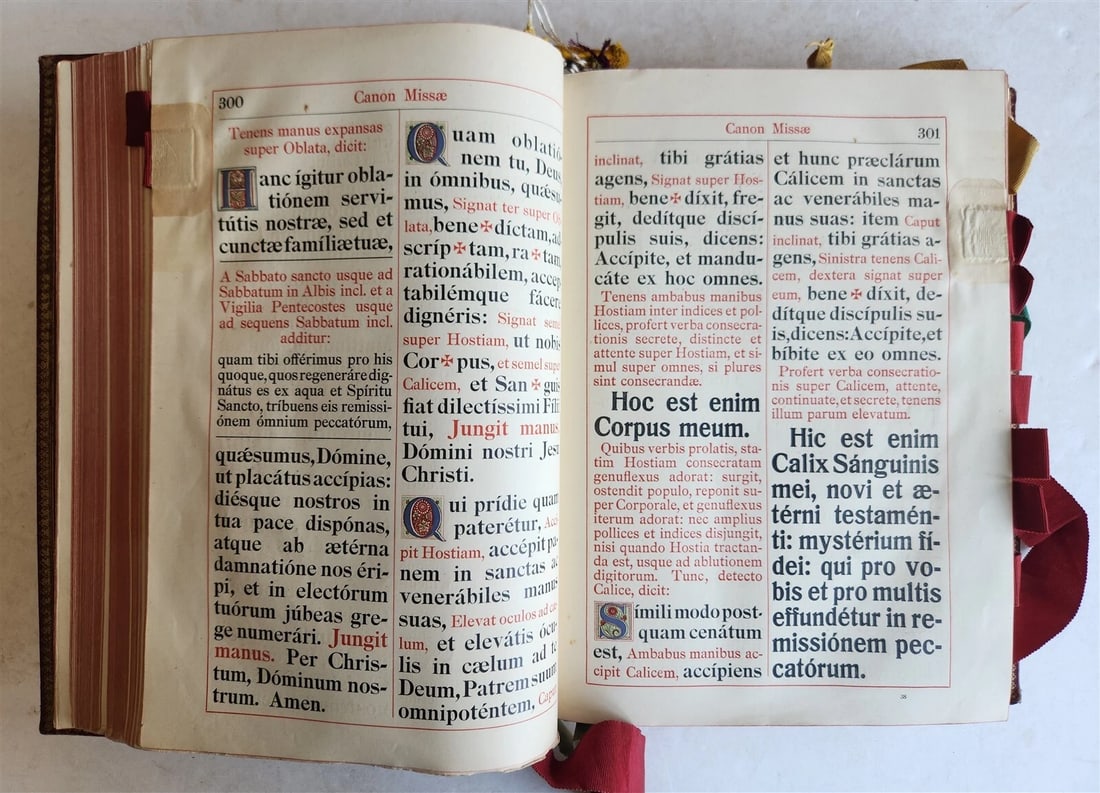 300
Canon Missæ
Tenens manus expansas
super Oblata, dicit:
Hanc ígitur obla-
tiónem servi-
tútis nostræ, sed et
cunctæ famíliæ tuæ,
A Sabbato sancto usque ad
Sabbatum in Albis incl. et a
Vigilia Pentecostes usque
ad sequens Sabbatum incl.
additur:
quam tibi offérimus pro his
quoque, quos regeneráre dig-
nátus es ex aqua et Spíritu
Sancto, tríbuens eis remissi-
ónem ómnium peccatórum,
quǽsumus, Dómine,
ut placátus accípias:
diésque nostros in
tua pace dispónas,
atque ab ætérna
damnatióne nos éri-
pi, et in electórum
tuórum júbeas gre-
ge numerári. Jungit
manus. Per Chris-
tum, Dóminum nos-
trum. Amen.
Quam oblatió-
nem tu, Deus
in ómnibus, quǽsu-
mus, Signat ter super Ob
lata, bene✠díctam, ad
scríp✠tam, ra✠tam
rationábilem, accep
tabilémque fácere
dignéris: Signat semel
super Hostiam, ut nobis
Cor✠pus, et semel super
Calicem, et San✠guis
fiat dilectíssimi Fílii
tui, Jungit manus
Dómini nostri Jesu
Christi.
Qui prídie quam
paterétur, Acci
pit Hostiam, accépit pa
nem in sanctas ac
venerábiles manus
suas, Elevat oculos ad cæ
lum, et elevátis ócu
lis in cælum ad te
Deum, Patrem suum
omnipoténtem, Caput
Canon Missæ
301
inclinat, tibi grátias
agens, Signat super Hos-
tiam, bene✠díxit, fre-
git, dedítque discí-
pulis suis, dicens:
Accípite, et mandu-
cáte ex hoc omnes.
Tenens ambabus manibus
Hostiam inter indices et pol-
lices, profert verba consecra-
tionis secrete, distincte et
attente super Hostiam, et si-
mul super omnes, si plures
sint consecrandæ.
Hoc est enim
Corpus meum.
Quibus verbis prolatis, sta-
tim Hostiam consecratam
genuflexus adorat: surgit,
ostendit populo, reponit su-
per Corporale, et genuflexus
iterum adorat: nec amplius
pollices et indices disjungit,
nisi quando Hostia tractan-
da est, usque ad ablutionem
digitorum. Tunc, detecto
Calice, dicit:
Símili modo post-
quam cenátum
est, Ambabus manibus ac-
cipit Calicem, accípiens
et hunc præclárum
Cálicem in sanctas
ac venerábiles ma-
nus suas: item Caput
inclinat, tibi grátias a-
gens, Sinistra tenens Cali-
cem, dextera signat super
eum, bene✠díxit, de-
dítque discípulis su-
is, dicens: Accípite, et
bíbite ex eo omnes.
Profert verba consecratio-
nis super Calicem, attente,
continuate, et secrete, tenens
illum parum elevatum.
Hic est enim
Calix Sánguinis
mei, novi et æ-
térni testamén-
ti: mystérium fí-
dei: qui pro vo-
bis et pro multis
effundétur in re-
missiónem pec-
catórum.